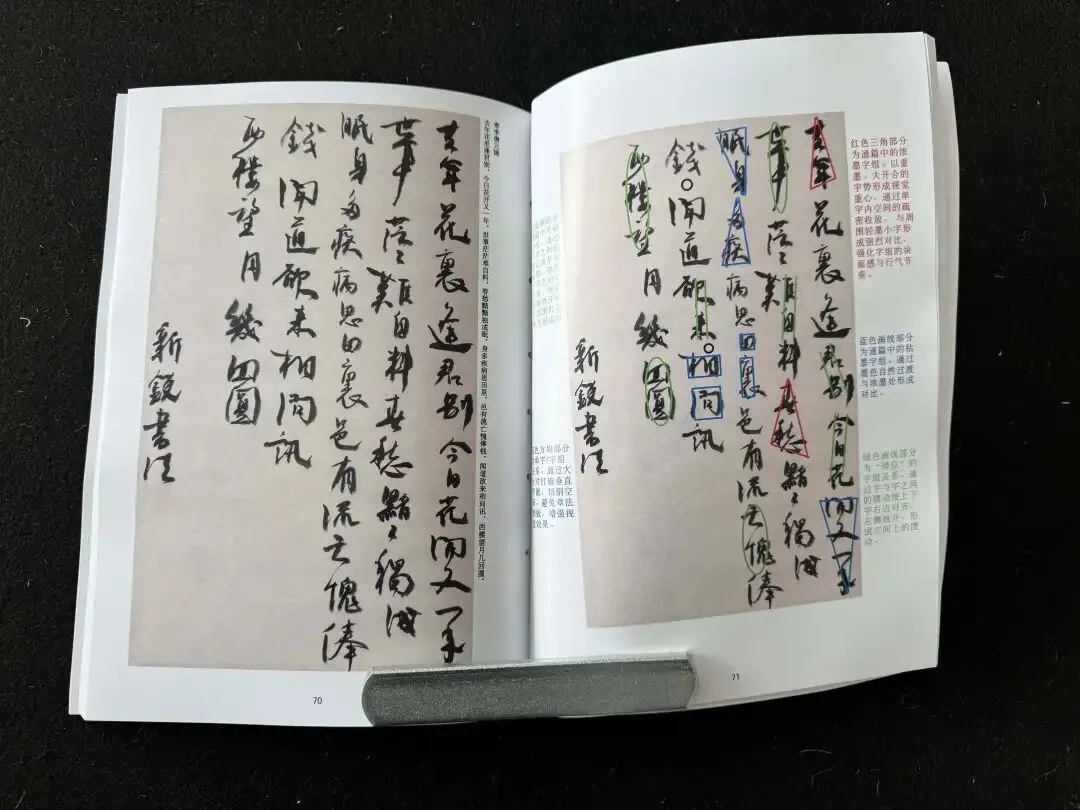 寄李儋元锡
去年花里逢君别，今日花开又一年。世事茫茫难自料，春愁黯黯独成眠。身多疾病思田里，邑有流亡愧俸钱。闻道欲来相问讯，西楼望月几回圆。
去年花裏逢君别今日花開又一年
世事茫々難自料春愁黯々獨成
眠身多疾病思田裏邑有流亡愧俸
錢聞道欲來相問訊
西樓望月幾回圓
新銳書法
70
去年花裏逢君别今日花開又一年
世事茫々難自料春愁黯々獨成
眠身多疾病思田裏邑有流亡愧俸
錢聞道欲來相問訊
西樓望月幾回圓
新銳書法
红色三角部分
为通篇中的浓
墨字组。以重
墨、大开合的
字势形成视觉
重心，通过单
字内空间的疏
密收放，与周
围轻墨小字形
成强烈对比，
强化字组的块
面感与行气节
奏。
蓝色画线部分
为通篇中的枯
墨字组。通过
墨色自然过渡
与浓墨处形成
对比。
绿色画线部分
为“错位”的
字组关系。通
过字与字之间
的摆动使上下
字右边对齐、
左侧放开，形
成空间上的摆
动。
色方块部分
字/字组
通过大
打破垂直
切割空
避免章法
增强视
觉效果。
71